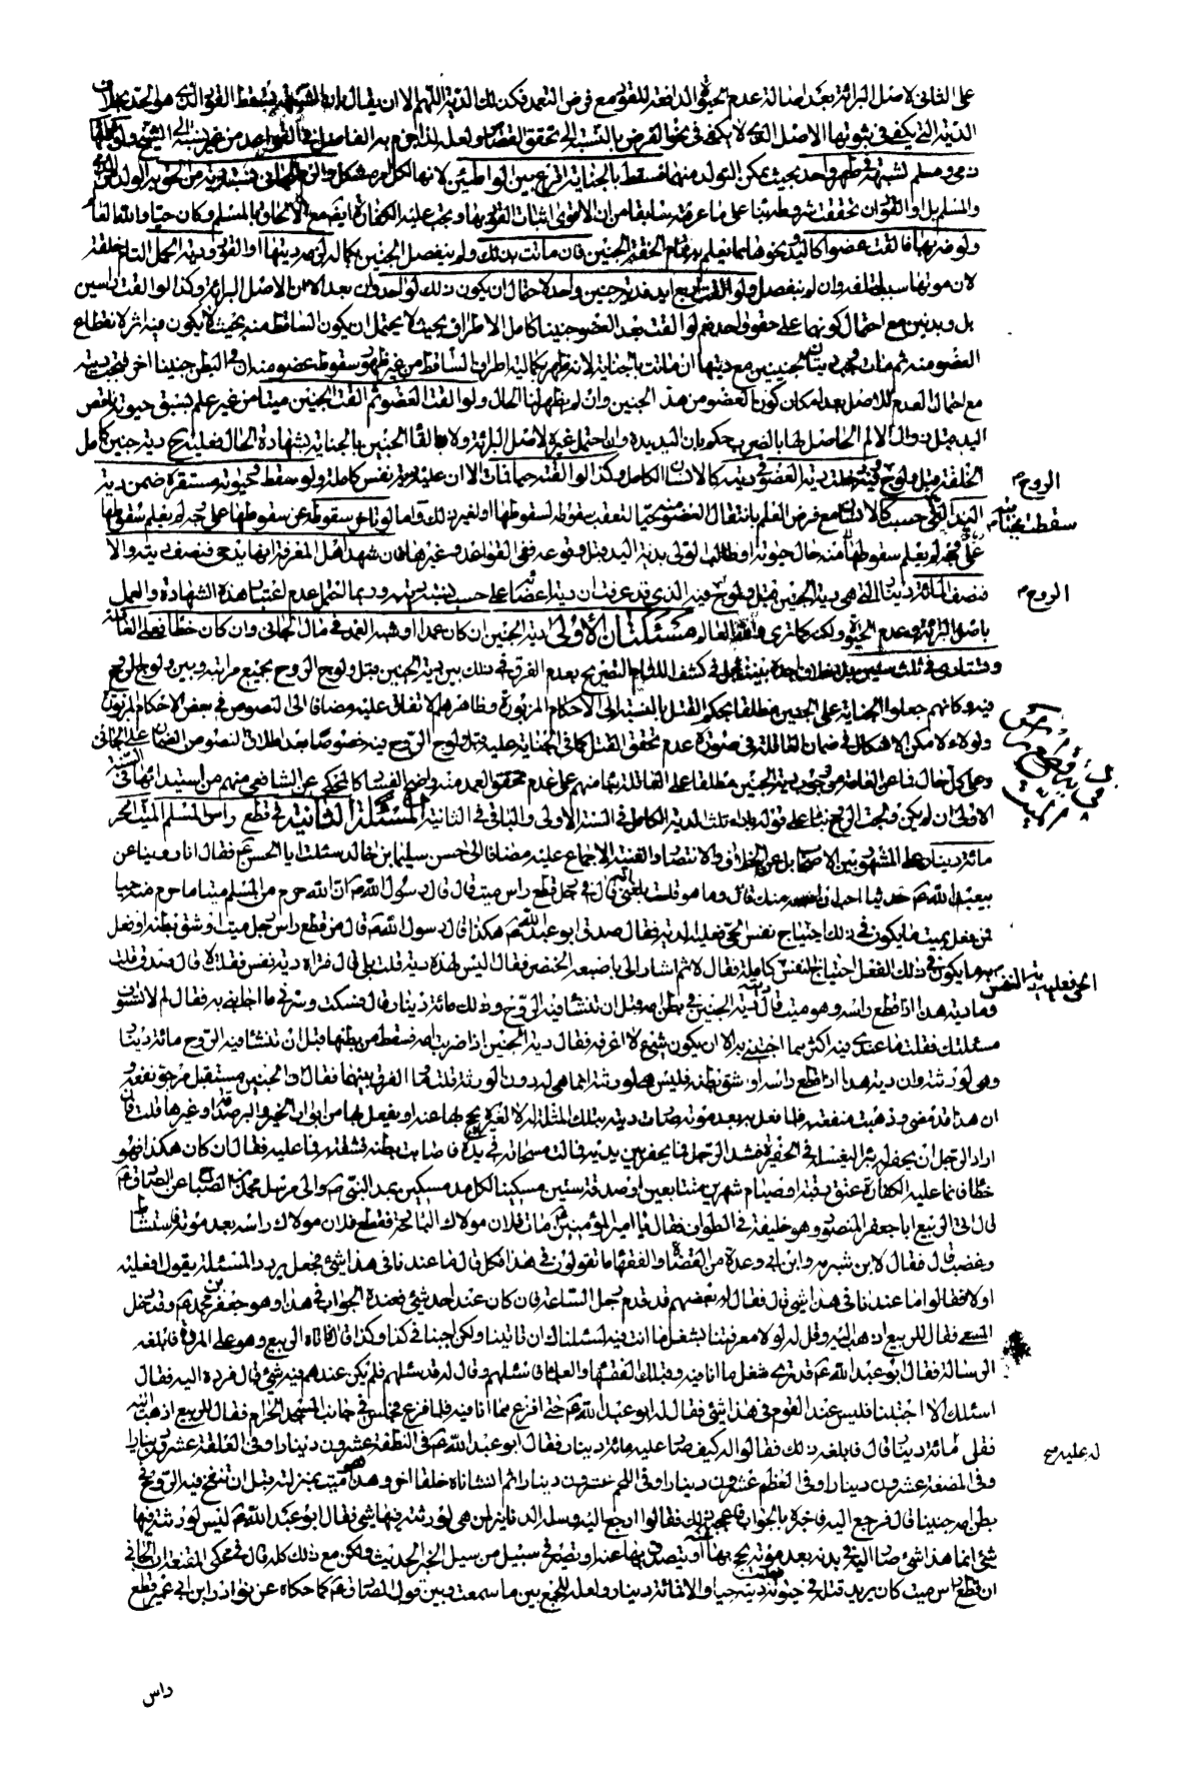 على الثانى لاصل البرائة بعد اصالة عدم الحيوة الدافعة للقود مع فرض التعمد فكذلك الدية اللهم الا ان يقال ان الشبهة يسقط القود الذى هو الحد بخلاف
الدية التى يكفى فى ثبوتها الاصل الذى لا يكفى فى نحو الفرض بالنسبة الى تحقق القصاص ولعله لذا جزم به الفاضل فى القواعد من غير نسبة الى الشيخ ولو وطئها
ذمى ومسلم لشبهة فى طهر واحد بحيث يمكن التولد منهما فسقط بالجناية اقرع بين الواطئين لانها لكل امر مشكل والزم الجانى بنسبة دية من الحق به الولد من الذمى
والمسلم بل او القود ان تحققت شروطه بناء على ما عرفته سابقا من ان الاقوى اثبات القود بها ويجب عليه الكفارة ايضا مع الالحاق بالمسلم وكان حيا والله العالم
ولو ضربها فالقت عضوا كاليد نحوها مما يعلم به تمام الخلقة الجنين فان ماتت بذلك ولم ينفصل الجنين بكماله لزمه ديتها او القود ودية الحمل التام خلقته
لان موتها سبب لتلفه وان لم ينفصل ولو القت اربع ايد فدية جنين واحد لاحتمال ان يكون ذلك لواحد وان بعد لان الاصل البرائة وكذا لو القت راسين
بل وبدنين مع احتمال كونهما على حقو واحد نعم لو القت بعد العضو جنينا كامل الاطراف بحيث لا يحتمل ان يكون الساقط منه بحيث لا يكون فيه اثر لانقطاع
العضو منه ثم مات فدية الجنينين مع ديتها ان ماتت بالجناية لانه ظهر بكمالية اطراف الساقط من غير ظهور سقوط عضو منه ان فى البطن جنينا اخر فتجب ديته
مع احتمال العدم للاصل بعد امكان كون العضو من هذا الجنين وان لم يظهر لنا الحال ولو القت العضو ثم القت الجنين ميتا من غير علم بسبق حيوة ناقص
اليد قبل زوال الالم الحاصل لها بالضرب حكم بان اليد يده وان احتمل غيره لاصل البرائة ولا القا الجنين بالجناية بشهادة الحال فعليه دية جنين كامل
الخلقة قبل ولوج فيه فدخلت دية العضو فى ديته كالانسان الكامل وكذا لو القته حيا فمات الا ان عليه دية نفس كاملة ولو سقط وحيوته مستقرة ضمن دية
الروح م
اليد التى حسب كالانسان مع فرض العلم بانتقال العضو منه حيا لتعقب سقوطه لسقوطها او لغير ذلك واما لو تاخر سقوطه عن سقوطها على وجه لم يعلم سقوطها
سقطت بجنايته
على وجه لم يعلم سقوطها منه حال حيوته او طالب الولى بدية اليد قبل وقوعه ففى القواعد وغيرها فان شهد اهل المعرفة انها يد حى فنصف ديته والا
فنصف المائة دينار التى هى دية الجنين قبل ولوج فيه الذى قد عرفت ان دية اعضائه على حسب نسبة ديته وربما احتمل عدم اعتبار هذه الشهادة والعمل
الروح م
باصل البرائة وعدم الحيوة ولكنه كما ترى والله العالم مسئلتان الاولى دية الجنين ان كان عمدا او شبه العمد فى مال الجانى وان كان خطأ فعلى العاقلة
وتستادى فى ثلث سنين بلا خلاف اجده بيننا بل فى كشف اللثام التصريح بعدم الفرق فى ذلك بين دية الجنين قبل ولوج الروح بجميع مراتبه وبين ولوج الروح
فيه وكانهم جعلوا الجناية على الجنين مطلقا بحكم القتل بالنسبة الى الاحكام المزبورة وظاهرهم الاتفاق عليه مضافا الى النصوص فى بعض الاحكام المزبورة
ولولاه لامكن الاشكال فى ضمان العاقلة فى صورة عدم تحقق القتل كما فى الجناية عليه قبل ولوج الروح فيه خصوصا بعد اطلاق النصوص من الضمان على الجانى
وعلى كل حال فما عن العامة من وجوب دية الجنين مطلقا على العاقلة بناء منهم على عدم تحقق العمد منه واضح الفساد كالمحكى عن الشافعى منهم من استيدائها فى السنة
الاولى ان لم يكن ولجت الروح بناء على قوله بانه ثلث الدية الكامل فى السنة الاولى والباقى فى الثانية المسئلة الثانية فى قطع راس المسلم الميت الحر
مائة دينار على المشهور بين الاصحاب بل عن الخلاف والانتصار والغنية الاجماع عليه مضافا الى حسن سليمان بن خالد سئلت ابا الحسن ع فقال انا روينا عن
ابيعبد الله ع حديثا احب ان اسمعه منك قال وما هو قلت بلغنى انه قال فى رجل قطع راس ميت قال قال رسول الله ص ان الله حرم من المسلم ميتا ما حرم منه حيا
فمن فعل بميت ما يكون فى ذلك اجتياح نفس الحى فعليه الدية فقال صدق ابو عبد الله ع هكذا قال رسول الله ص قال من قطع راس رجل ميت او شق بطنه او فعل
به ما يكون فى ذلك الفعل اجتياح النفس كاملة فقال لا ثم اشار الى باصبعه الخنصر فقال اليس لهذه دية قلت بلى قال فتراه دية نفس فقلت لا قال صدقت قلت
الحى فعليه دية النفس
وما دية هذا اذا قطع راسه وهو ميت قال دية الجنين فى بطن امه قبل ان تنشا فيه الروح وذلك مائة دينار قال فسكت وسرنى ما اجابنى به فقال لم لا تستوف
مسئلتك فقلت ما عندى فيه اكثر مما اجبتنى به الا ان يكون شئ لا اعرفه فقال دية الجنين اذا ضربت امه فسقط من بطنها قبل ان تنشا فيه الروح مائة دينار
وهى لورثته وان دية هذا اذا قطع راسه او شق بطنه فليس هى لورثته انما هى له دون الورثة قلت وما الفرق بينهما فقال ان الجنين مستقبل مرجو نفعه و
ان هذا قد مضى وذهبت منفعته فلما فعل به بعد موته صارت ديته بتلك المثلة له لا لغيره يحج بها عنه او يفعل بها من ابواب الخير والبر من صدقة او غيرها قلت فان
اراد الرجل ان يحفر له بئرا ليغسله فى الحفرة فسدر الرجل مما يحفر بين يديه فمالت مسحاته فى يده فاصابت بطنه فشقته فما عليه فقال ان كان هكذا فهو
خطأ فانما عليه الكفارة عتق رقبة او صيام شهرين متتابعين او صدقة ستين مسكينا لكل مد مسكين بمد النبى ص والى مرسل محمد بن الصباح عن الصادق ع
قال اتى الربيع ابا جعفر المنصور وهو خليفة فى الطواف فقال يا امير المؤمنين مات فلان مولاك البارحة فقطع فلان مولاك راسه بعد موته فاستشاط
وغضب قال فقال لابن شبرمة وابن ابى وعدة من القضاة والفقهاء ما تقولون فى هذا فكل قال ما عندنا فى هذا شئ فجعل يردد المسئلة يقول اقتله
او لا فقالوا ما عندنا فى هذا شئ قال فقال له بعضهم قد قدم رجل الساعة فان كان عند احد شئ فعنده الجواب فى هذا وهو جعفر بن محمد ع وقد دخل
المسعى فقال للربيع اذهب اليه وقل له لولا معرفتنا بشغل ما انت فيه لسئلناك ان تاتينا ولكن اجبنا فى كذا وكذا قال فاتاه الربيع وهو على المروة فابلغه
الرسالة فقال ابو عبد الله ع قد ترى شغل ما انا فيه وقبلك الفقهاء والعلماء فاسئلهم وقال له قد سئلهم فلم يكن عندهم فيه شئ قال فرده اليه فقال
اسئلك الا اجبتنا فليس عند القوم فى هذا شئ فقال له ابو عبد الله ع حتى افرغ مما انا فيه فلما فرغ جلس فى جانب المسجد الحرام فقال للربيع اذهب اليه
فقل مائة دينار قال فابلغه ذلك فقالوا له كيف صار عليه مائة دينار فقال ابو عبد الله ع فى النطفة عشرون دينارا وفى العلقة عشرون دينارا
له عليه مح
وفى المضغة عشرون دينارا وفى العظم عشرون دينارا وفى اللحم عشرون دينارا ثم انشاناه خلقا اخر وهذا هو ميت بمنزلته قبل ان تنفخ فيه الروح فى
بطن امه جنينا قال فرجع اليه فاخبره بالجواب فاعجبهم ذلك فقالوا ارجع اليه وسله الدنانير لمن هى لورثته فيها شئ فقال ابو عبد الله ع ليس لورثته فيها
شئ انما هذا شئ صار اليه فى بدنه بعد موته يحج بها عنه او يتصدق بها عنه او تصير فى سبيل من سبيل الخير الحديث ولكن مع ذلك كله قال فى محكى المقنع ان الجانى
ان قطع راس ميت كان يريد قتله فى حيوته فعليه ديته حيا والا فمائة دينار ولعله للجمع بين ما سمعت وبين قول الصادق ع كما حكاه عن نوادر ابن ابى عمير قطع
راس